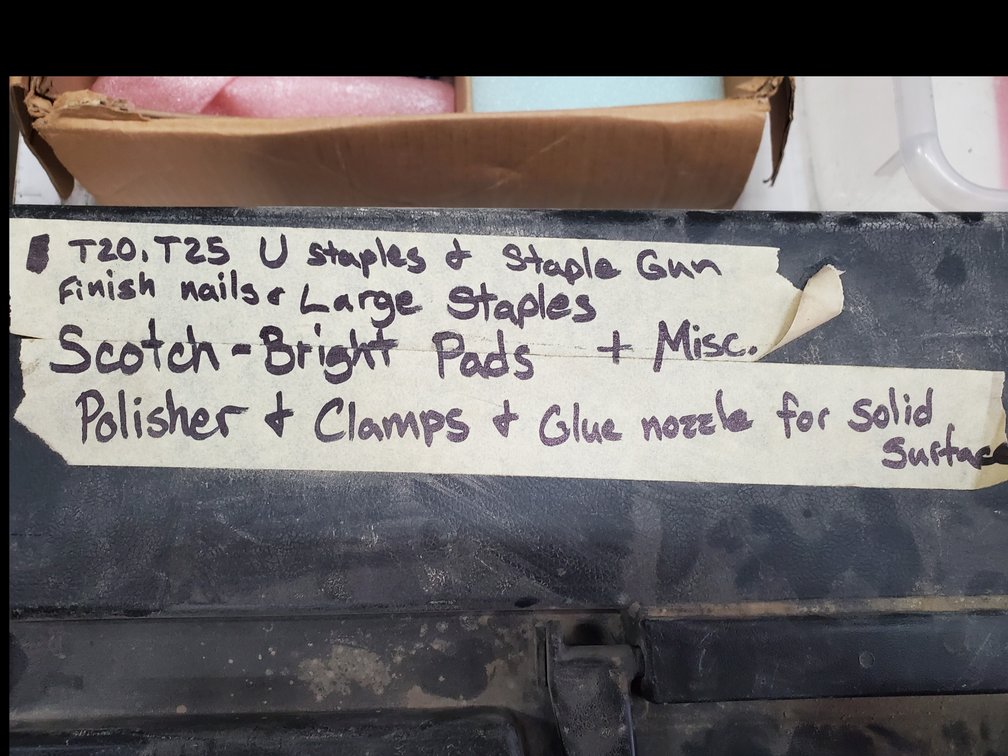 T20, T25 U staples & Staple Gun
Finish nails & Large Staples
Scotch-Bright Pads + Misc.
Polisher & Clamps & Glue nozzle for Solid
Surface